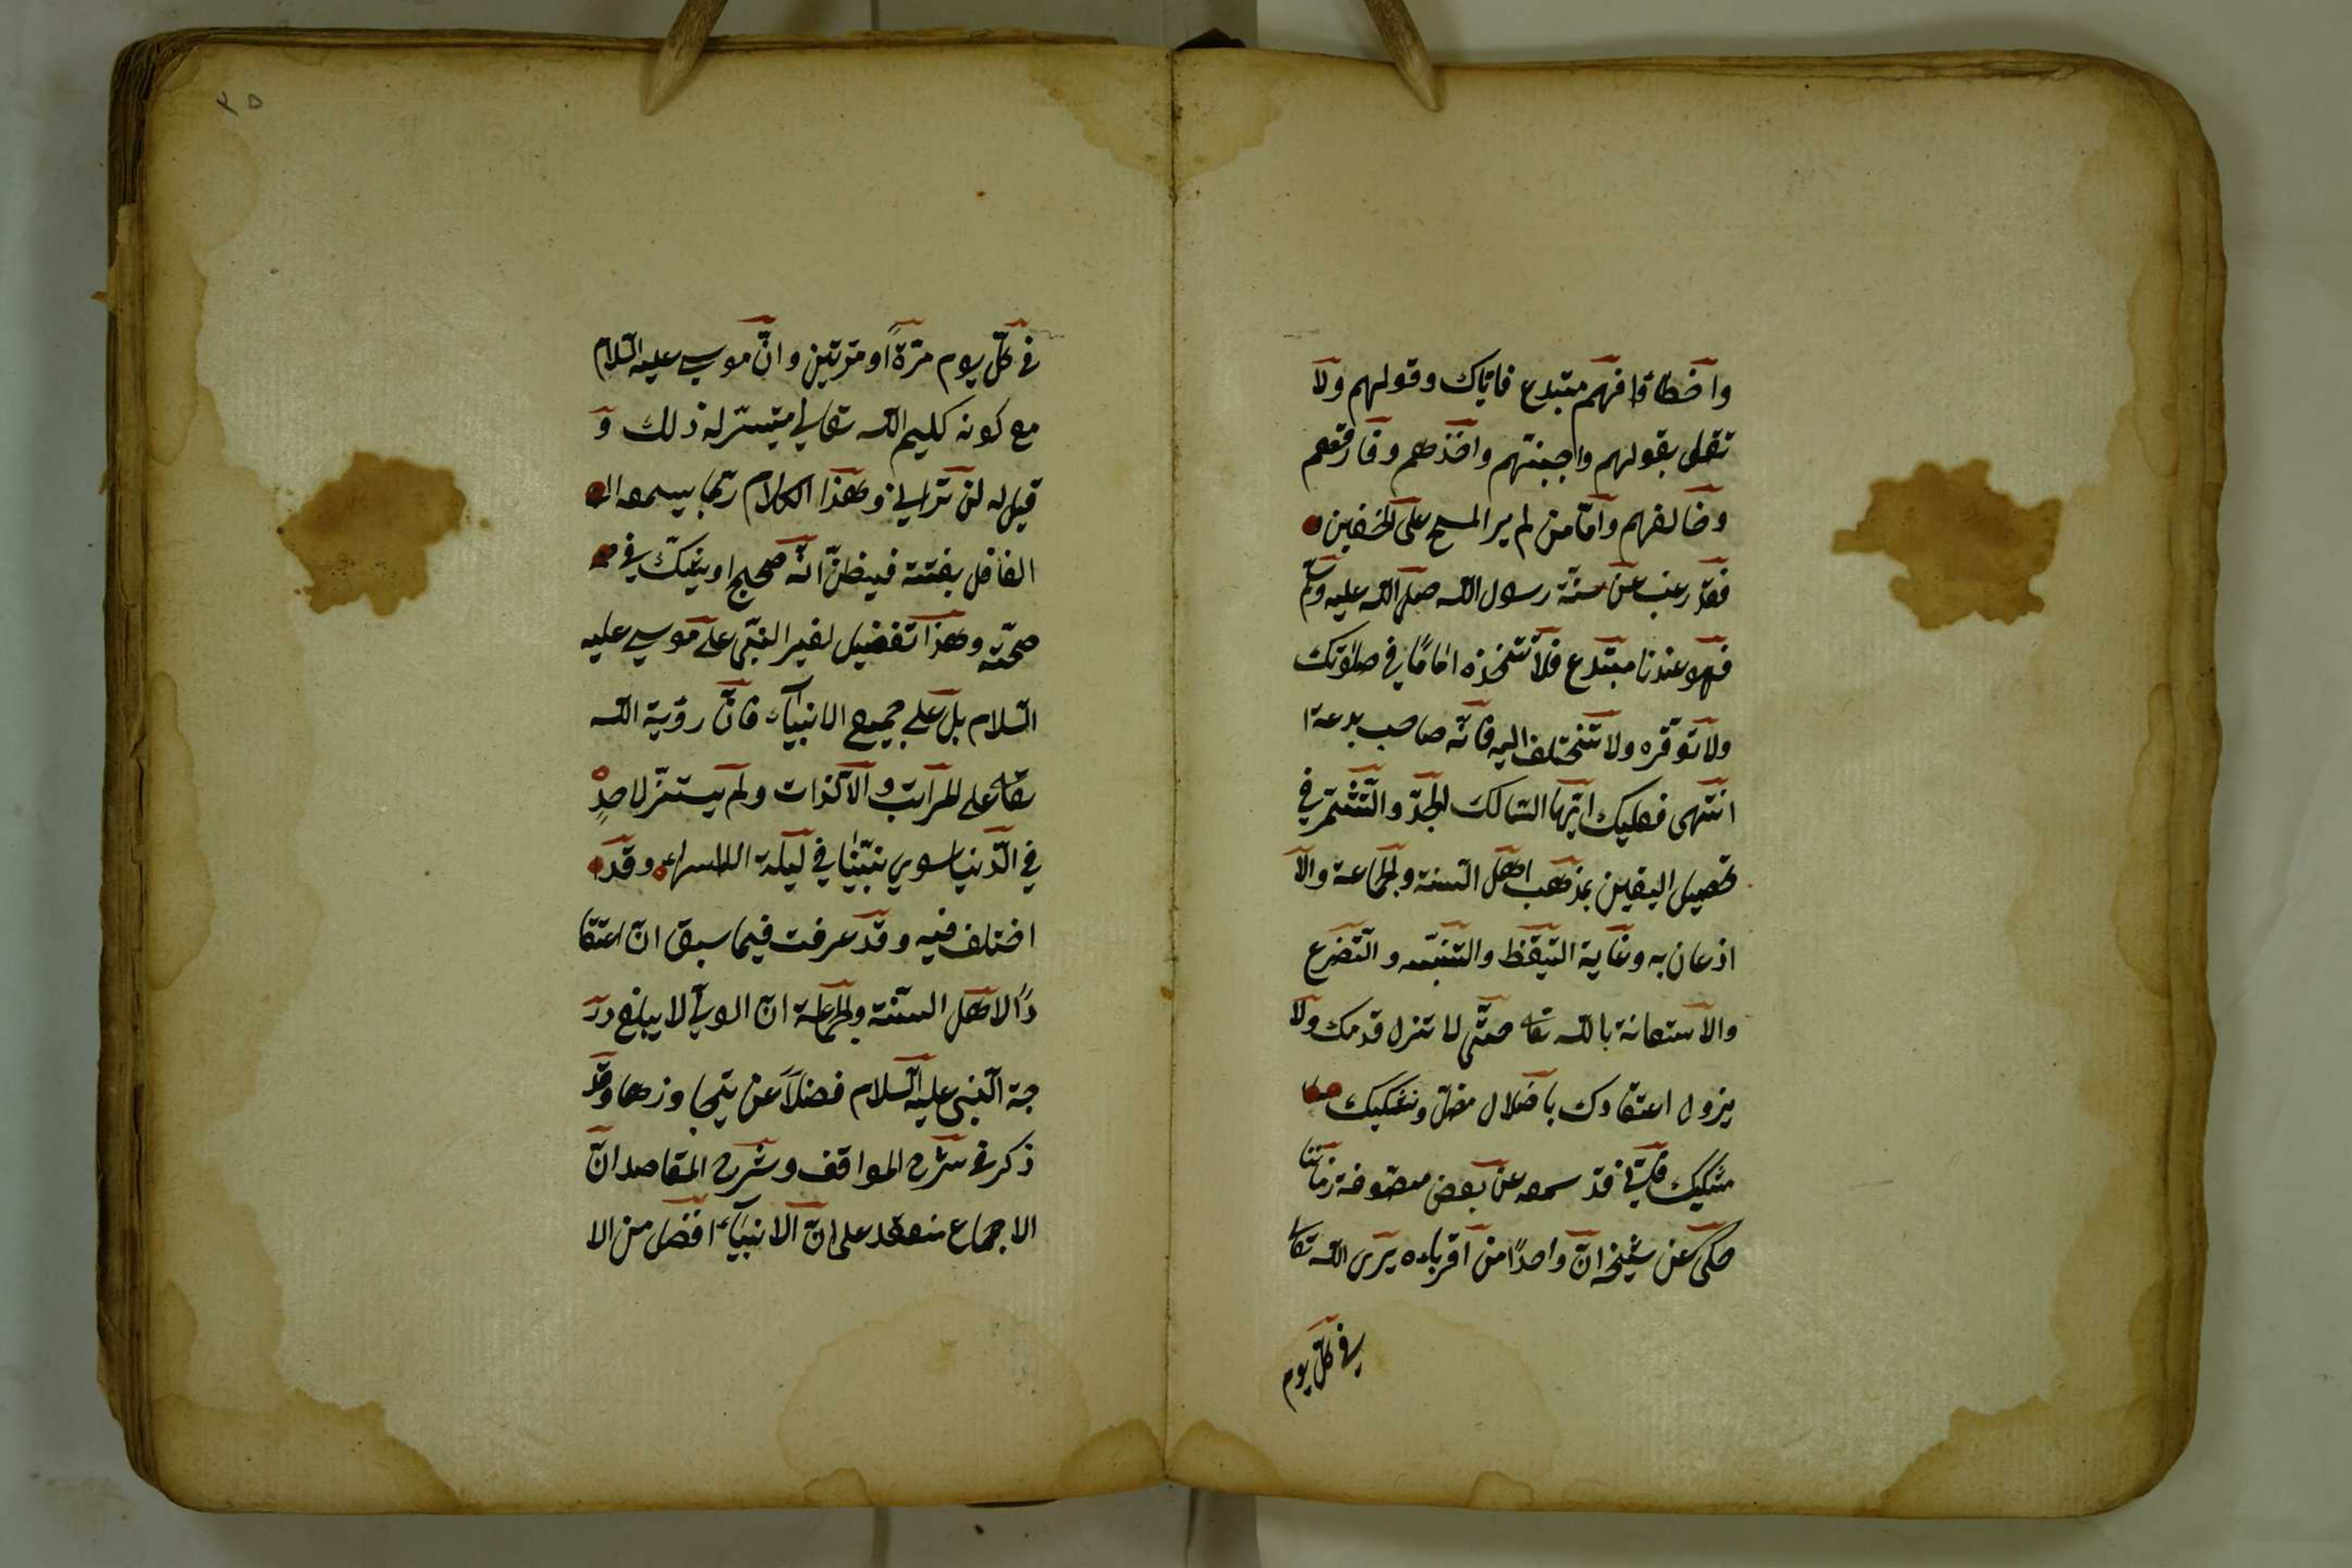 واخطاؤا فهم مبتدع فاياك وقولهم ولا
تقل بقولهم واجبنتهم واخذهم وفارقهم
وخالفهم وأمّا من لم ير المسح على الخفين
فقد رغب عن سنّة رسول الله صلى الله عليه وسلم
فهو عندنا مبتدع فلا تتخذه اماما في صلوتك
ولا توقّره ولا تختلف اليه فانّه صاحب بدعة ا
انتهى فعليك ايّها السّالك لجدّ والتّشمّر في
تحصيل اليقين بمذهب اهل السنة والجماعة والا
اذعان به وغاية التيقّظ والتنبّه والتّضرع
والاستعانة بالله تعا حتّى لا تزل قدمك ولا
يزول اعتقادك باضلال مضلّ وتشكيك
مشكّك فانّي قد سمعه عن بعض متصوفة زماننا
حكى عن شيخه انّ واحدًا من اقرباءه يرى الله تعالى
في كلّ يوم
٣٥
في كلّ يوم مرّةً او مرّتين وانّ موسى عليه السّلام
مع كونه كليم الله تعالى لم يتيسّر له ذلك و
قيل له لن تراني وهذا الكلام ربّما يسمعه ال
الغافل بغتتة فيظنّ انّه صحيح او يشكّ في
صحّته وهذا تفضيل لغير النبّي على موسى عليه
السّلام بل على جميع الانبيآء فانّ رؤية الله
تعا على المراتب والآلذات ولم يتيسّر لاحدٍ
في الدّنيا سوى نبيّنا في ليلة الاسراء وقد
اختلف فيه وقد عرفت فيما سبق انّ اعتقا
دًا لاهل السنّة والجماعة انّ الوليّ لا يبلغ در
جة النبّى عليه السّلام فضلاً عن يتجاوزها وقد
ذكر في شرح المواقف وشرح المقاصد انّ
الاجماع منعقد على انّ الانبيآء افضل من الا